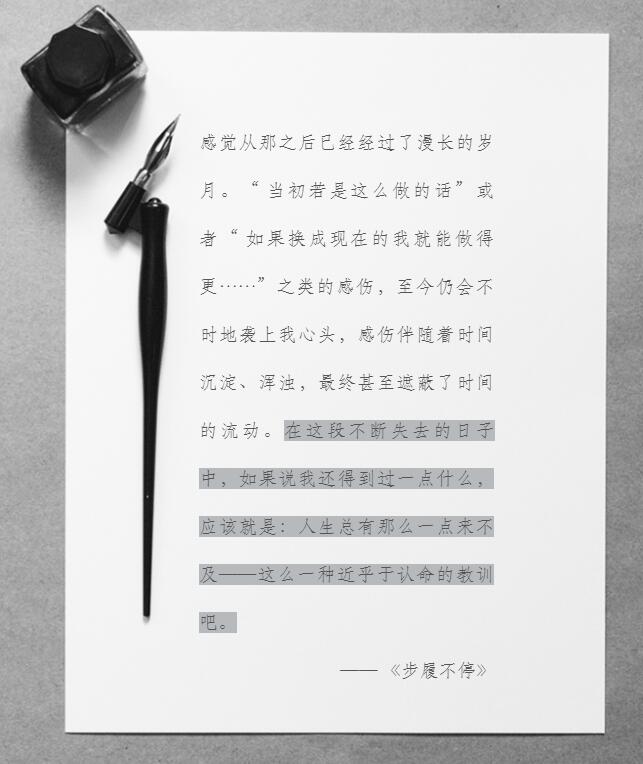 感觉从那之后已经经过了漫长的岁
月。“当初若是这么做的话”或
者“如果换成现在的我就能做得
更……”之类的感伤，至今仍会不
时地袭上我心头，感伤伴随着时间
沉淀、浑浊，最终甚至遮蔽了时间
的流动。在这段不断失去的日子
中，如果说我还得到过一点什么，
应该就是：人生总有那么一点来不
及——这么一种近乎于认命的教训
吧。
——《步履不停》